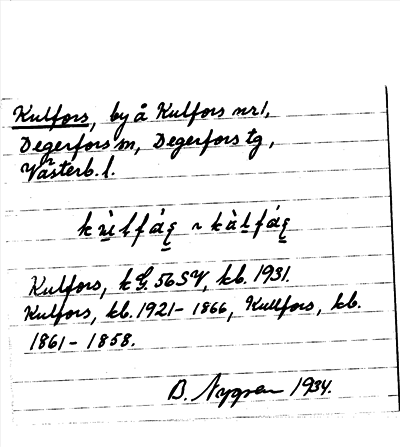 Kulfors, by å Kulfors nr 1,
Degerfors sn, Degerfors tg,
Västerb. l.
Kulfors, 56 SV, kb. 1931.
Kulfors, kb. 1921-1866, Kullfors, kb.
1861-1858.
B. Nygren 1934.